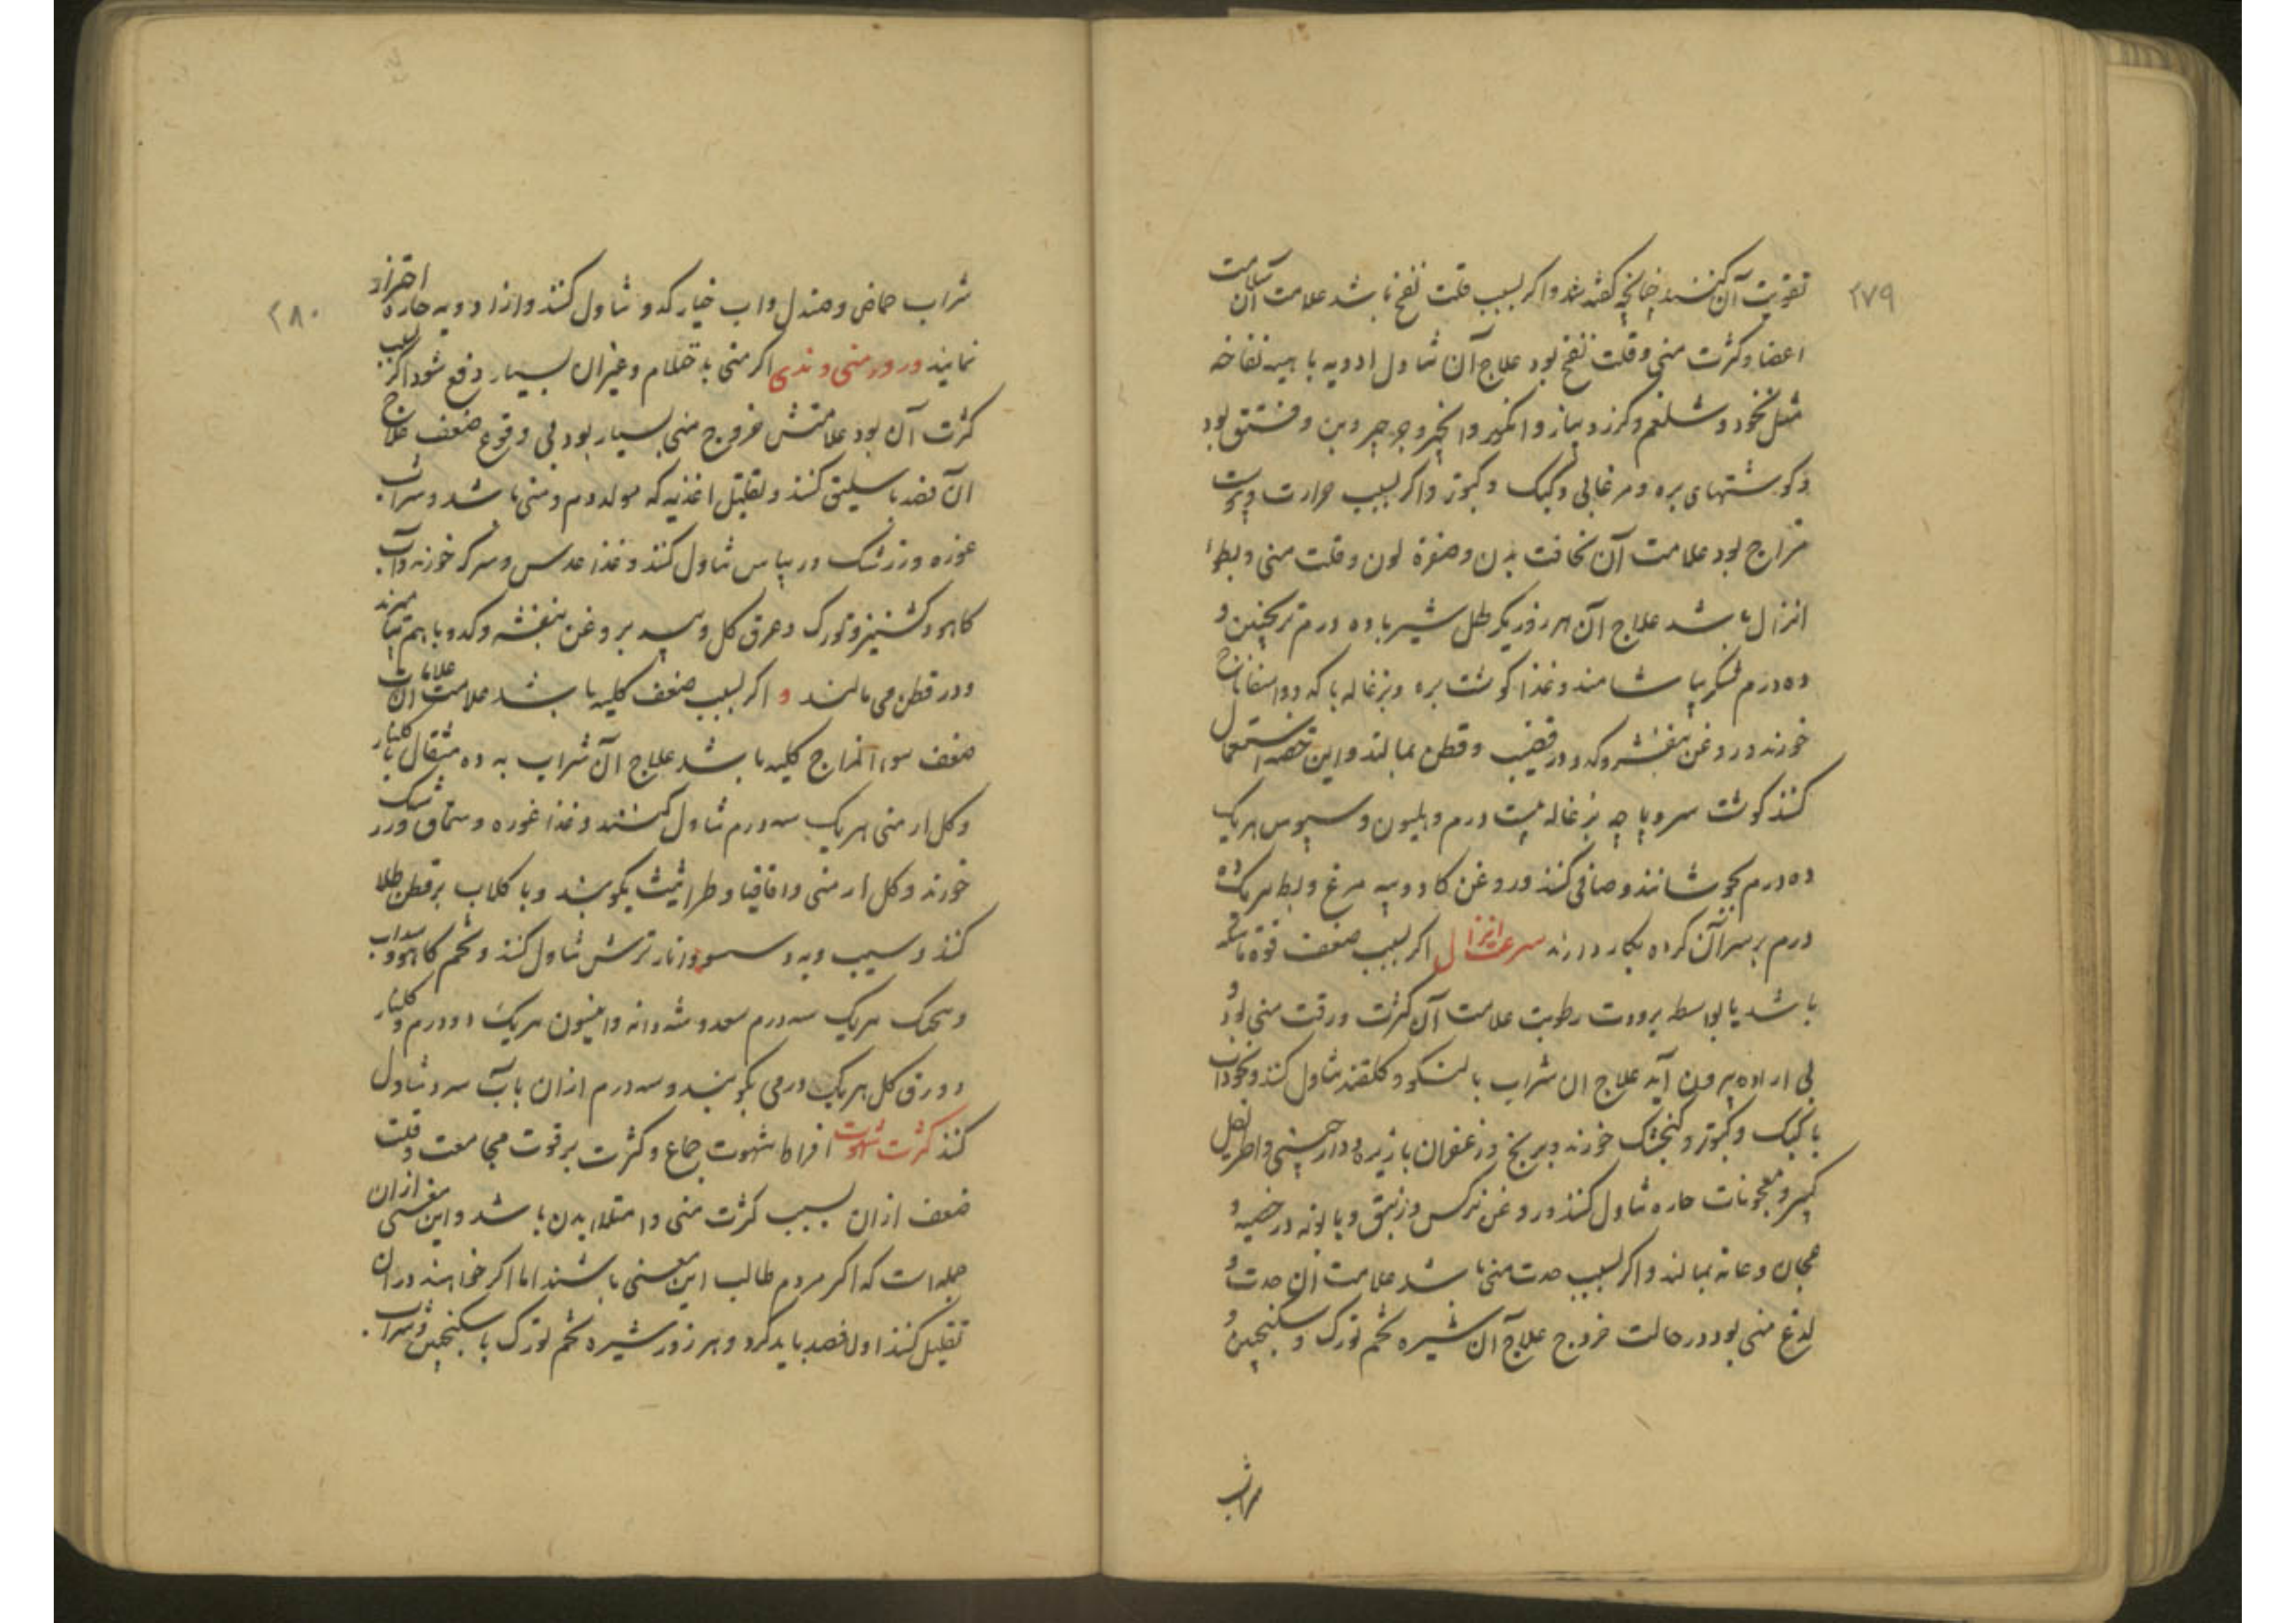 ۲۷۹
تقویت آن کنند چنانچه گفته شد و اگر بسبب قلت نفخ باشد علامت آن سلامت
اعضا و کثرت منی و قلت نفخ بود علاج آن تناول ادویه باهیه نفاخه
مثل نخود و شلغم و کرز و پیاز و انکور و انجیر و جرجیر و بن و فستق بود
و کوشتهای بره و مرغابی و کبک و کبوتر و اکر بسبب حرارت و یبوست
مزاج بود علامت آن نحافت بدن و صفرة لون و قلت منی و بطوء
انزال باشد علاج آن هر روز یکرطل شیر با ده درم ترنجبین و
ده درم شکر بیاشامند و غذا کوشت بره و بزغاله با کدو و اسفاناخ
خورند و روغن بنفشه و کدو در قضیب و قطن بمالند و این حقنه استعمال
کنند کوشت سر و پاچه بزغاله بیست درم و هلیون و سبوس هریک
ده درم بجوشانند و صافی کنند و روغن کاو و پیه مرغ و بط هریک ده
درم بر سر آن کرده بکار دارند سرعت انزال اکر بسبب ضعف قوة ماسکه
باشد یا بواسطه برودت رطوبت علامت آن کثرت و رقت منی بود و
بی اراده بیرون آید علاج ان شراب بالنکو و کلقند تناول کنند و نخوداب
با کبک و کبوتر و کنجشک خورند و برنج و زعفران با زیره و دارچینی و اطریفل
کبیر و معجونات حاره تناول کنند و روغن نرکس و زنبق و بابونه در خصیه و
عجان و عانه بمالند و اکر بسبب حدت منی باشد علامت آن حدت و
لدغ منی بود در حالت خروج علاج آن شیره تخم تورک و سکنجبین و
شراب
۲۸۰
شراب حماض و صندل و اب خیار کدو تناول کنند و از ادویه حاره احتراز
نمایند درور منی و ندی اکر منی بد حتلام و غیر ان بسیار دفع شود اکر بسبب
کثرت آن بود علامتش خروج منی بسیار بود بی وقوع ضعف علاج
ان فصد باسلیق کنند و تقلیل اغذیه که مولد دم و منی باشد و شراب
غوره و زرشک و ریباس تناول کنند و غذا عدس و سرکه خورند و آب
کاهو و کشنیز و تورک و عرق کل و سبد بروغن بنفشه و کدو باهم بیامیزند
و در قطن می مالند و اکر بسبب ضعف کلیه باشد علامت آن علامات
ضعف سوء المزاج کلیه باشد علاج آن شراب به ده مثقال با کلنار
و کل ارمنی هریک سه درم تناول کنند و غذا غوره و سماق و زرشک
خورند و کل ارمنی و اقاقیا و طراثیث بکوبند و با کلاب بر قطن طلا
کنند و سیب و به و انار ترش تناول کنند و تخم کاهو و سداب
هریک سه درم سعد و شهدانه و انیسون هریک دو درم و کلنار
و ورق کل هریک درمی بکوبند و سه درم ازان باب سرد تناول
کنند کثرت شهوت افراط شهوت جماع و کثرت بر قوت مجامعت و قلت
ضعف ازان بسبب کثرت منی و امتلاء بدن باشد و این معنی ازان
جمله است که اکر مردم طالب این معنی باشند اما اکر خواهند دران
تقلیل کنند اول فصد باید کرد و هر روز شیره تخم تورک با سکنجبین و شراب